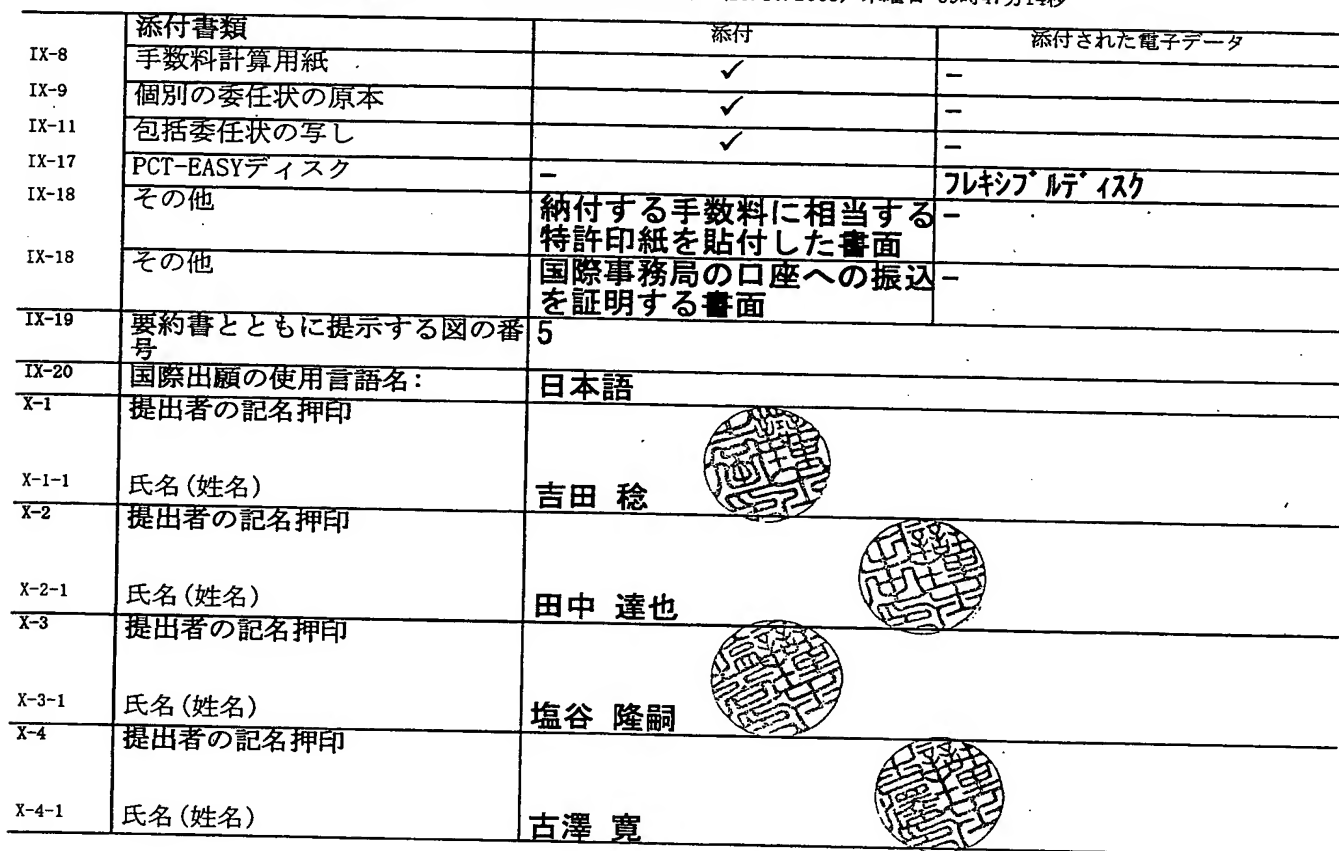 木曜日 09時47分14秒
添付書類 添付 添付された電子データ
IX-8 手数料計算用紙 ✓ -
IX-9 個別の委任状の原本 ✓ -
IX-11 包括委任状の写し ✓ -
IX-17 PCT-EASYディスク - フレキシブルディスク
IX-18 その他 納付する手数料に相当する -
特許印紙を貼付した書面
IX-18 その他 国際事務局の口座への振込 -
を証明する書面
IX-19 要約書とともに提示する図の番 5
号
IX-20 国際出願の使用言語名: 日本語
X-1 提出者の記名押印
X-1-1 氏名(姓名) 吉田 稔
X-2 提出者の記名押印
X-2-1 氏名(姓名) 田中 達也
X-3 提出者の記名押印
X-3-1 氏名(姓名) 塩谷 隆嗣
X-4 提出者の記名押印
X-4-1 氏名(姓名) 古澤 寛